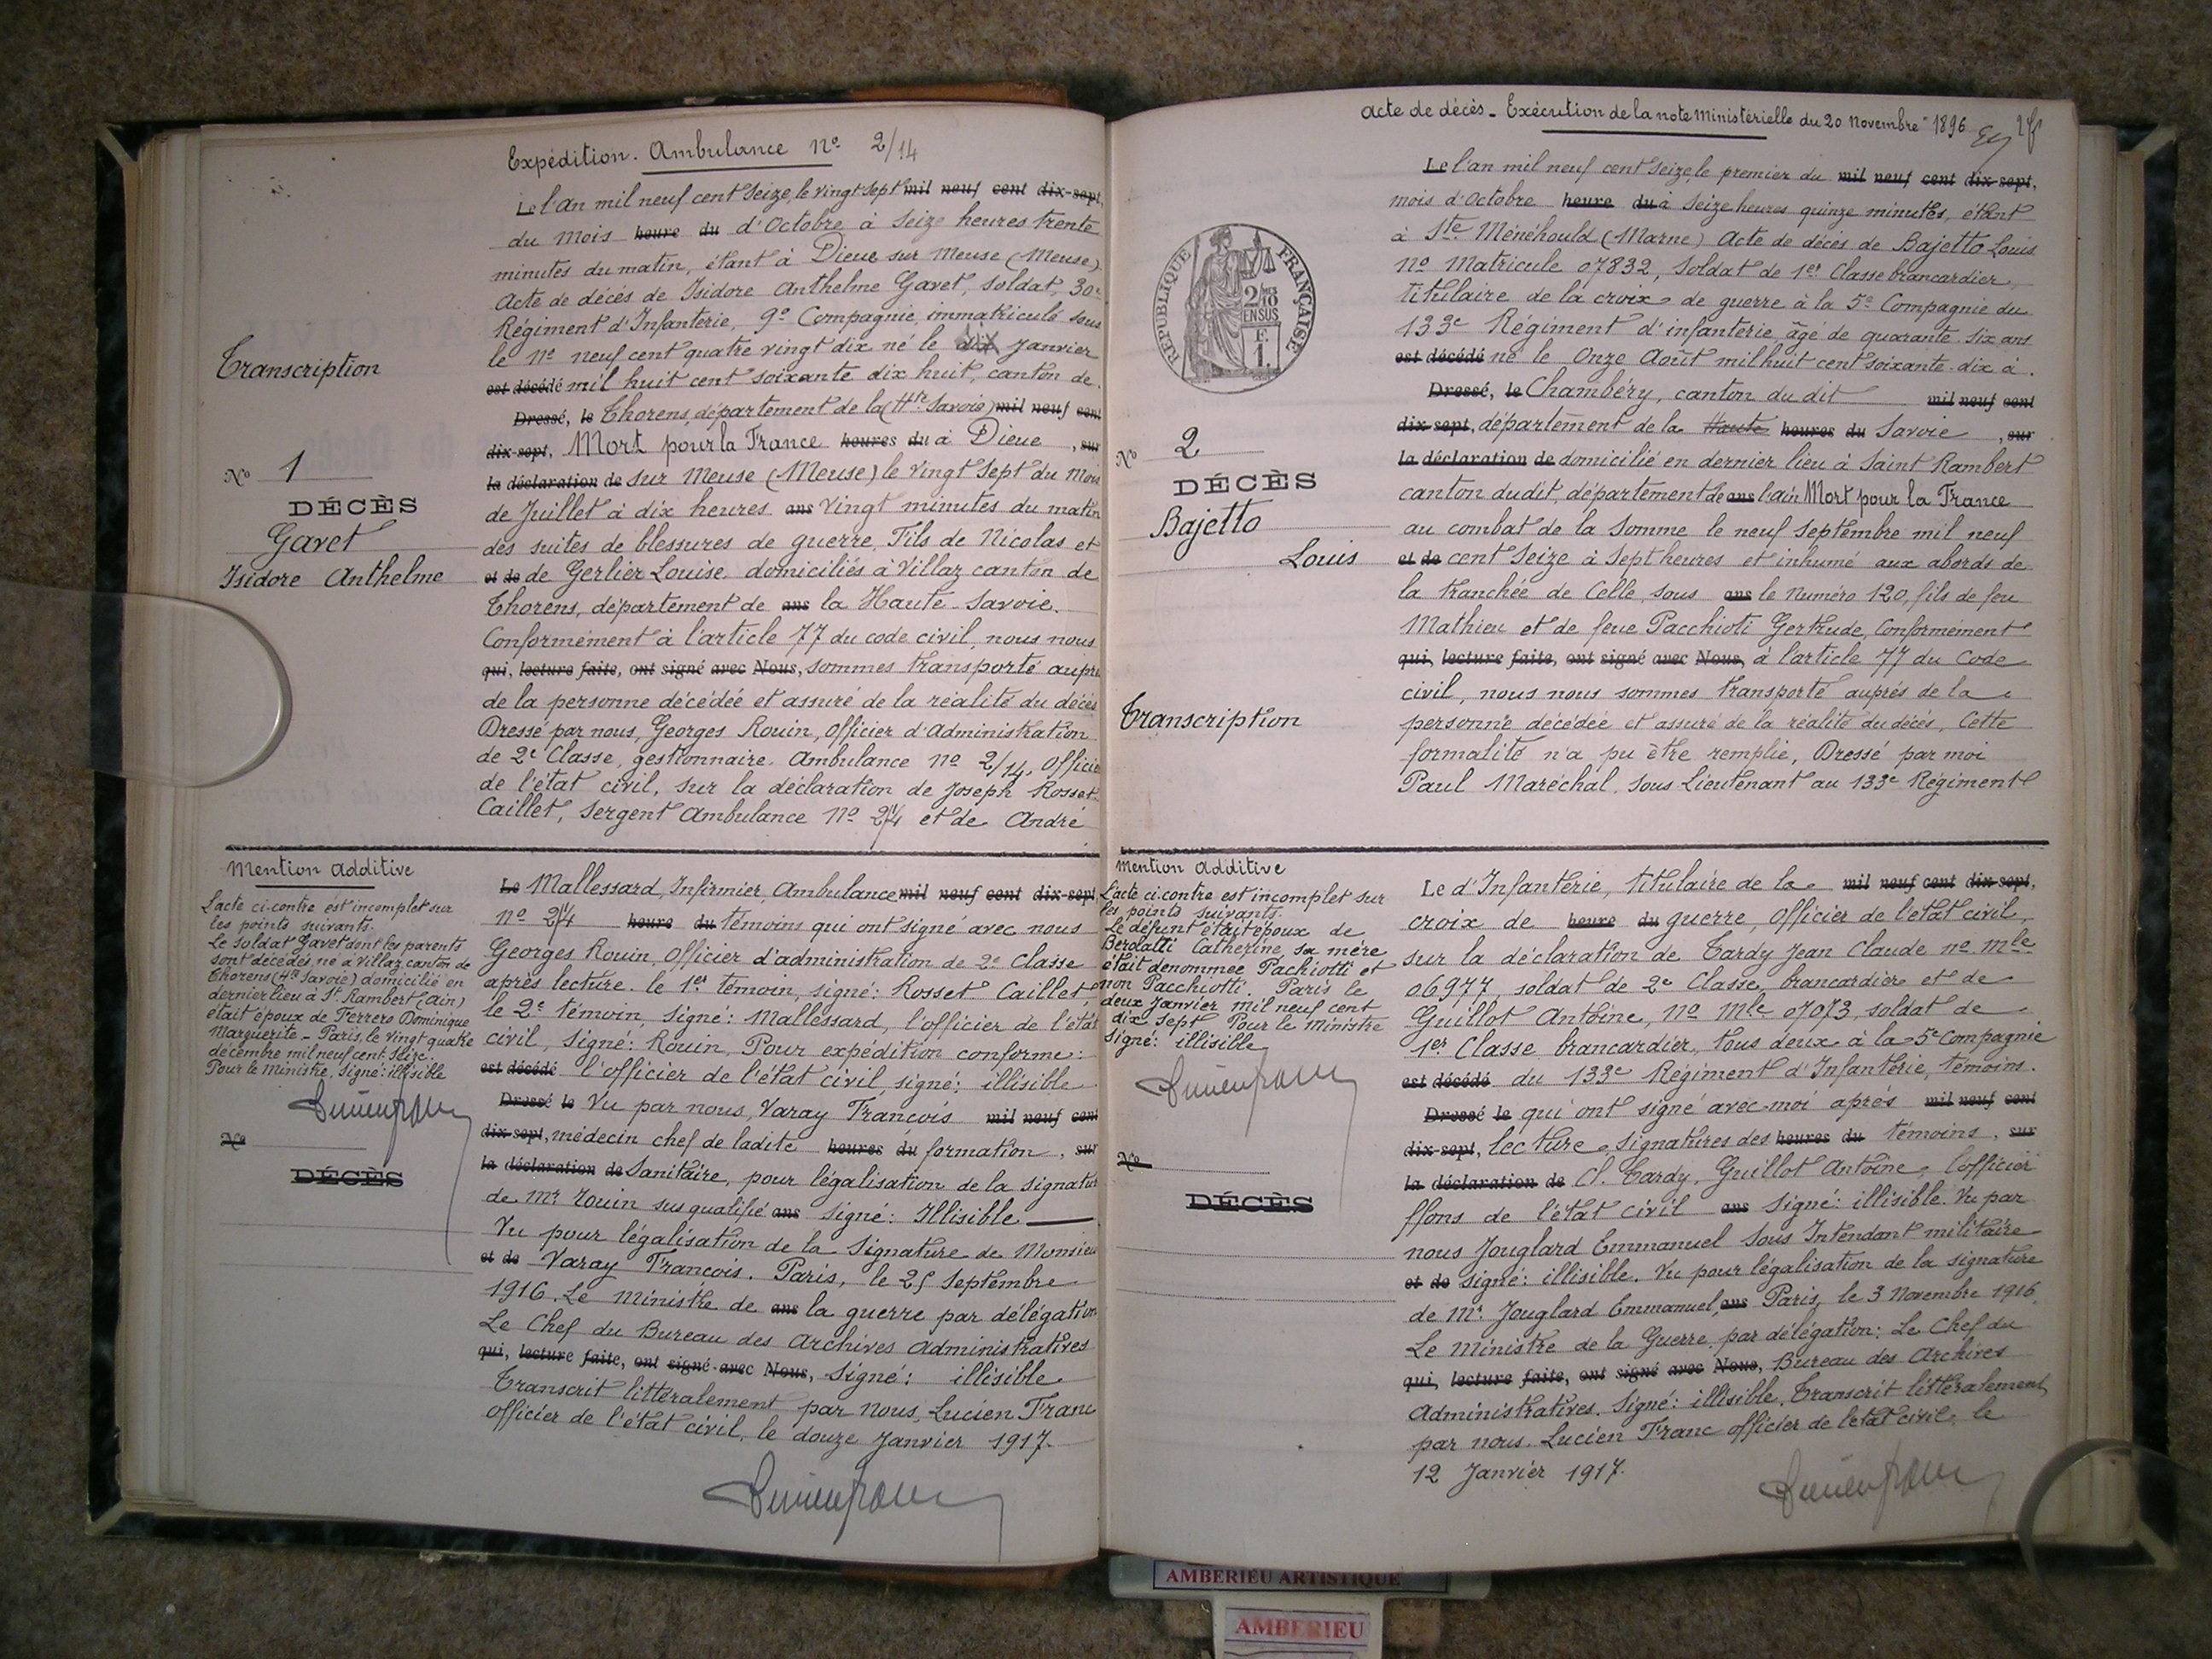 Expédition. Ambulance No 2/14
Le l'an mil neuf cent seize, le vingt sept mil neuf cent dix-sept,
du mois heure du d'Octobre à seize heures trente
minutes du matin, étant à Dieue sur Meuse (Meuse)
Acte de décès de Isidore Anthelme Gavet, soldat, 30e
Régiment d'Infanterie, 9e Compagnie, immatriculé sous
le No neuf cent quatre vingt dix né le dix Janvier
est décédé mil huit cent soixante dix huit, canton de
Dressé, le Thorens, département de la (Hte Savoie) mil neuf cent
dix-sept, Mort pour la France heures du à Dieue , sur
la déclaration de sur Meuse (Meuse) le vingt sept du Mois
de Juillet à dix heures ans vingt minutes du matin
des suites de blessures de guerre, Fils de Nicolas et
et de de Gerlier Louise, domiciliés à Villaz canton de
Thorens, département de ans la Haute Savoie.
Conformément à l'article 77 du code civil, nous nous
qui, lecture faite, ont signé avec Nous, sommes transporté auprès
de la personne décédée et assuré de la réalité du décès
Dressé par nous, Georges Rouin, Officier d'Administration
de 2e Classe, gestionnaire. Ambulance No 2/14, Officier
de l'état civil, sur la déclaration de Joseph Rosset
Caillet, Sergent Ambulance No 2/14 et de André
Transcription
No 1
DÉCÈS
Gavet
Isidore Anthelme
Mention Additive
L'acte ci-contre est incomplet sur
les points suivants.
Le soldat Gavet dont les parents
sont décédés, né à Villaz, canton de
Thorens (Hte Savoie) domicilié en
dernier lieu à St Rambert (Ain)
était époux de Ferrero Dominique
Marguerite _ Paris, le vingt quatre
décembre mil neuf cent seize.
Pour le Ministre. Signé: illisible
No
DÉCÈS
Le Mallessard, Infirmier, Ambulance mil neuf cent dix-sept
No 2/14 heure du témoins qui ont signé avec nous
Georges Rouin, Officier d'administration de 2e Classe
après lecture. le 1er témoin, signé: Rosset Caillet,
le 2e témoin, Signé: Mallessard, l'officier de l'état
civil, Signé: Rouin, Pour expédition conforme:
est décédé l'officier de l'état civil, signé: illisible
Dressé le Vu par nous, Varay François mil neuf cent
dix-sept, médecin chef de ladite heures du formation , sur
la déclaration de Sanitaire, pour légalisation de la signature
de Mr Rouin sus qualifié ans Signé: Illisible
Vu pour légalisation de la Signature de Monsieur
et de Varay François. Paris, le 25 Septembre
1916. Le Ministre de ans la guerre par délégation
Le Chef du Bureau des Archives Administratives
qui, lecture faite, ont signé avec Nous, Signé: illisible
Transcrit littéralement par Nous, Lucien Franc
Officier de l'état civil, le douze Janvier 1917.
Acte de décès _ Exécution de la note Ministérielle du 20 Novembre 1896
Le l'an mil neuf cent seize, le premier du mil neuf cent dix-sept,
mois d'Octobre heure du à Seize heures quinze minutes, étant
à Ste Ménéhould (Marne) Acte de décès de Bajetto Louis
No Matricule 07832, Soldat de 1er Classe brancardier
titulaire de la croix de guerre à la 5e Compagnie du
133e Régiment d'infanterie, âgé de quarante Six ans
est décédé né le Onze Août mil huit cent soixante-dix à
Dressé, le Chambéry, canton du dit mil neuf cent
dix-sept, département de la Haute heures du Savoie , sur
la déclaration de domicilié en dernier lieu à Saint Rambert
canton dudit, département de ans l'Ain Mort pour la France
au combat de la Somme le neuf Septembre mil neuf
et de cent Seize à Sept heures et inhumé aux abords de
la tranchée de Celle, sous ans le Numéro 120, fils de feu
Mathieu et de feue Pacchioti Gertrude, Conformément
qui, lecture faite, ont signé avec Nous, à l'article 77 du Code
civil, nous nous sommes transporté auprès de la
personne décédée et assuré de la réalité du décès, Cette
formalité n'a pu être remplie, Dressé par moi
Paul Maréchal, Sous Lieutenant au 133e Régiment
REPUBLIQUE FRANÇAISE
2/10
EN SUS
F.
1.
No 2
DÉCÈS
Bajetto
Louis
Transcription
Mention Additive
L'acte ci-contre est incomplet sur
les points suivants.
Le défunt était époux de
Berdatti Catherine, sa mère
était dénommée Pachiotti et
non Pacchiotti. Paris le
deux Janvier mil neuf cent
dix sept Pour le ministre
Signé: illisible
No
DÉCÈS
Le d'Infanterie, titulaire de la mil neuf cent dix-sept,
croix de heure du guerre, Officier de l'état civil,
sur la déclaration de Tardy Jean Claude No Mle
06977, soldat de 2e Classe, brancardière et de
Guillot Antoine, No Mle 07073, soldat de
1er Classe brancardier, tous deux à la 5e Compagnie
est décédé du 133e Régiment d'Infanterie, témoins.
Dressé le qui ont signé avec moi après mil neuf cent
dix-sept, lecture, Signatures des heures du témoins , sur
la déclaration de Cl. Tardy, Guillot Antoine, l'officier
ffons de l'état civil ans Signé: illisible. Vu par
nous Jouglard Emmanuel Sous Intendant militaire
et de Signé: illisible. Vu pour légalisation de la signature
de Mr Jouglard Emmanuel, ans Paris, le 3 Novembre 1916
Le Ministre de la Guerre, par délégation: Le Chef du
qui, lecture faite, ont signé avec Nous, Bureau des Archives
Administratives, Signé: illisible, Transcrit littéralement
par nous, Lucien Franc officier de l'état civil, le
12 Janvier 1917.
AMBERIEU ARTISTIQUE
AMBERIEU